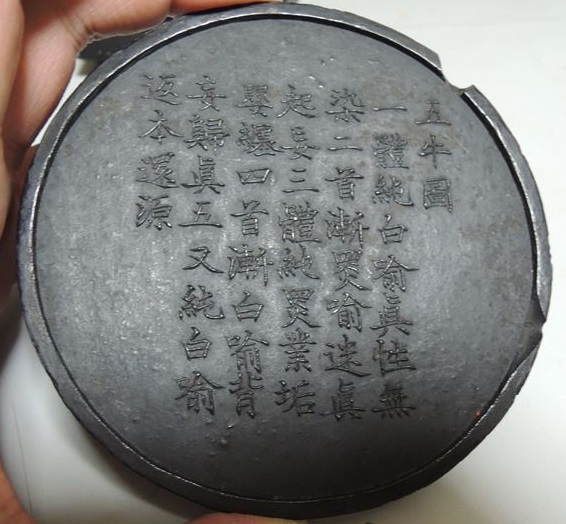 五牛圖
一體純白喻眞性無
染二首漸黑喻迷眞
起妄三體純黑業垢
嬰纏四首漸白喻背
妄歸眞五又純白喻
返本還源